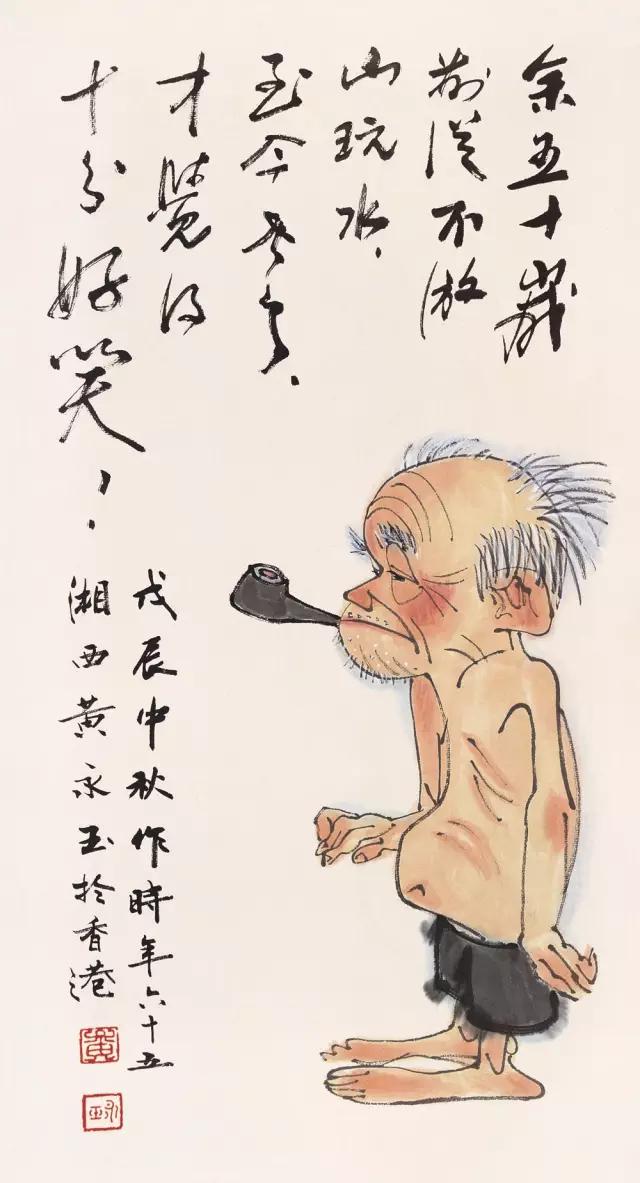 余五十歲
前從不游
山玩水、
至今老矣、
才覺得
十分好笑！
戊辰中秋作時年六十五
湘西黃永玉於香港
黃
永玉